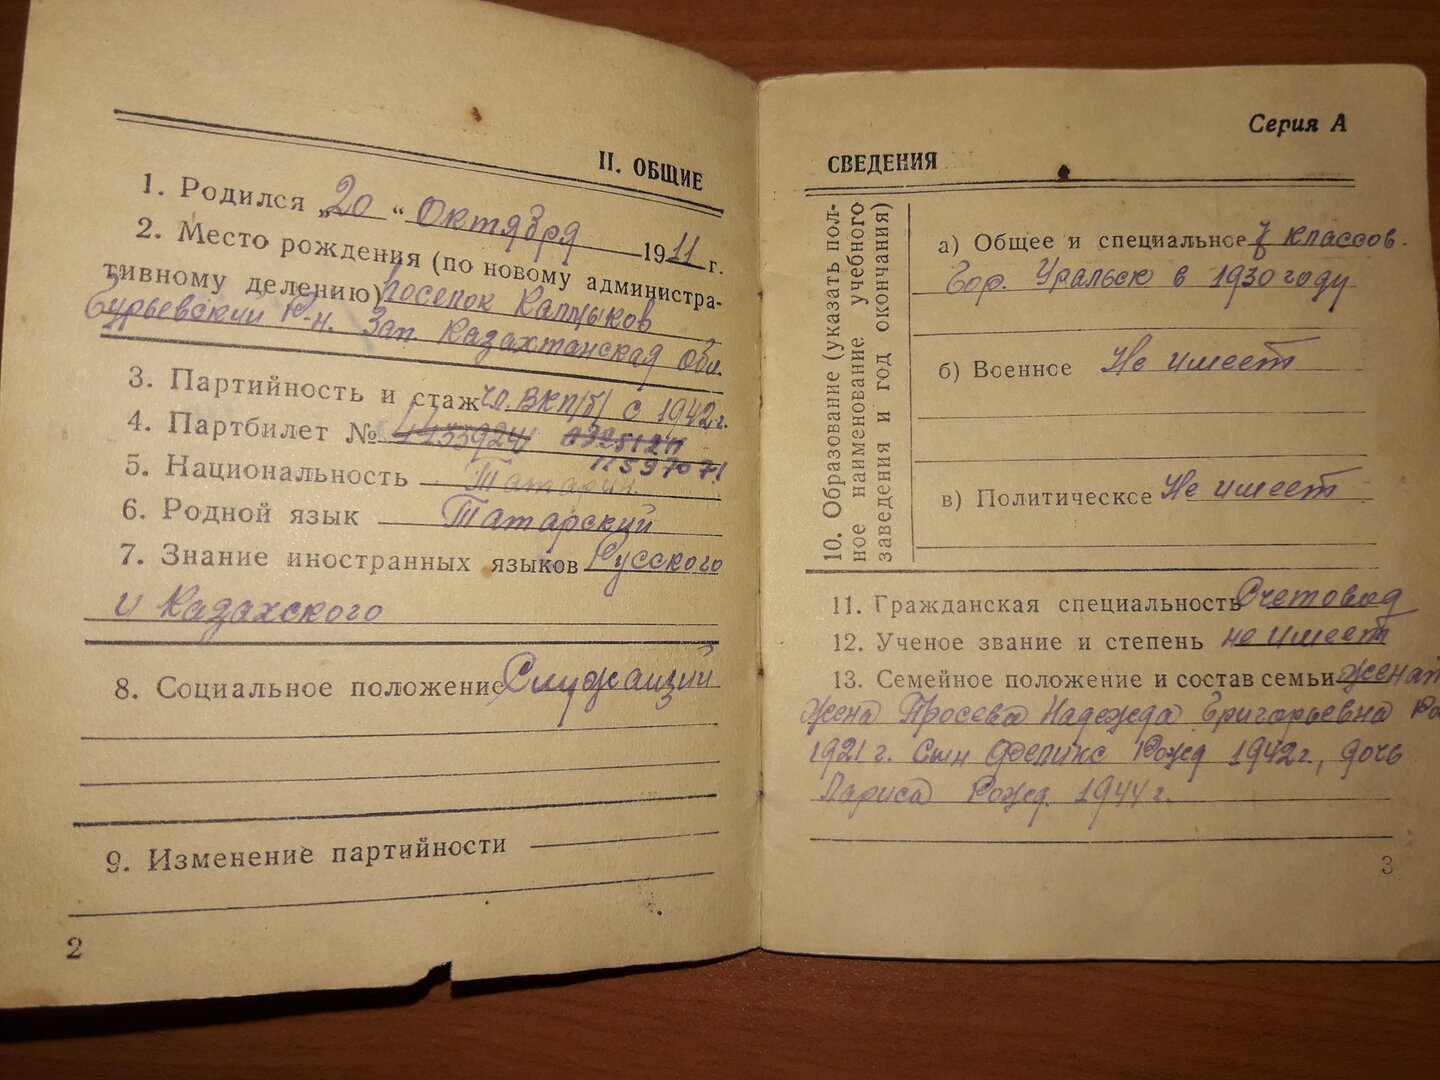 II. ОБЩИЕ
1. Родился „20“ Октября 1911 г.
2. Место рождения (по новому администра-
тивному делению) поселок Калмыков
Гурьевский Р-н. Зап Казахтанская Обл.
3. Партийность и стаж чл. ВКП/б/ с 1942 г.
4. Партбилет №
11597071
5. Национальность Татарин.
6. Родной язык Татарский
7. Знание иностранных языков Русского
и Казахского
8. Социальное положение Служащий
9. Изменение партийности
2
Серия А
СВЕДЕНИЯ
10. Образование (указать пол-
ное наименование учебного
заведения и год окончания)
а) Общее и специальное 7 классов.
Гор. Уральск в 1930 году
б) Военное Не имеет
в) Политическое Не имеет
11. Гражданская специальность Счетовод
12. Ученое звание и степень не имеет
13. Семейное положение и состав семьи женат
жена Просева Надежда Григорьевна
1921 г. Сын Феликс Рожд 1942 г., дочь
Лариса Рожд. 1944 г.
3